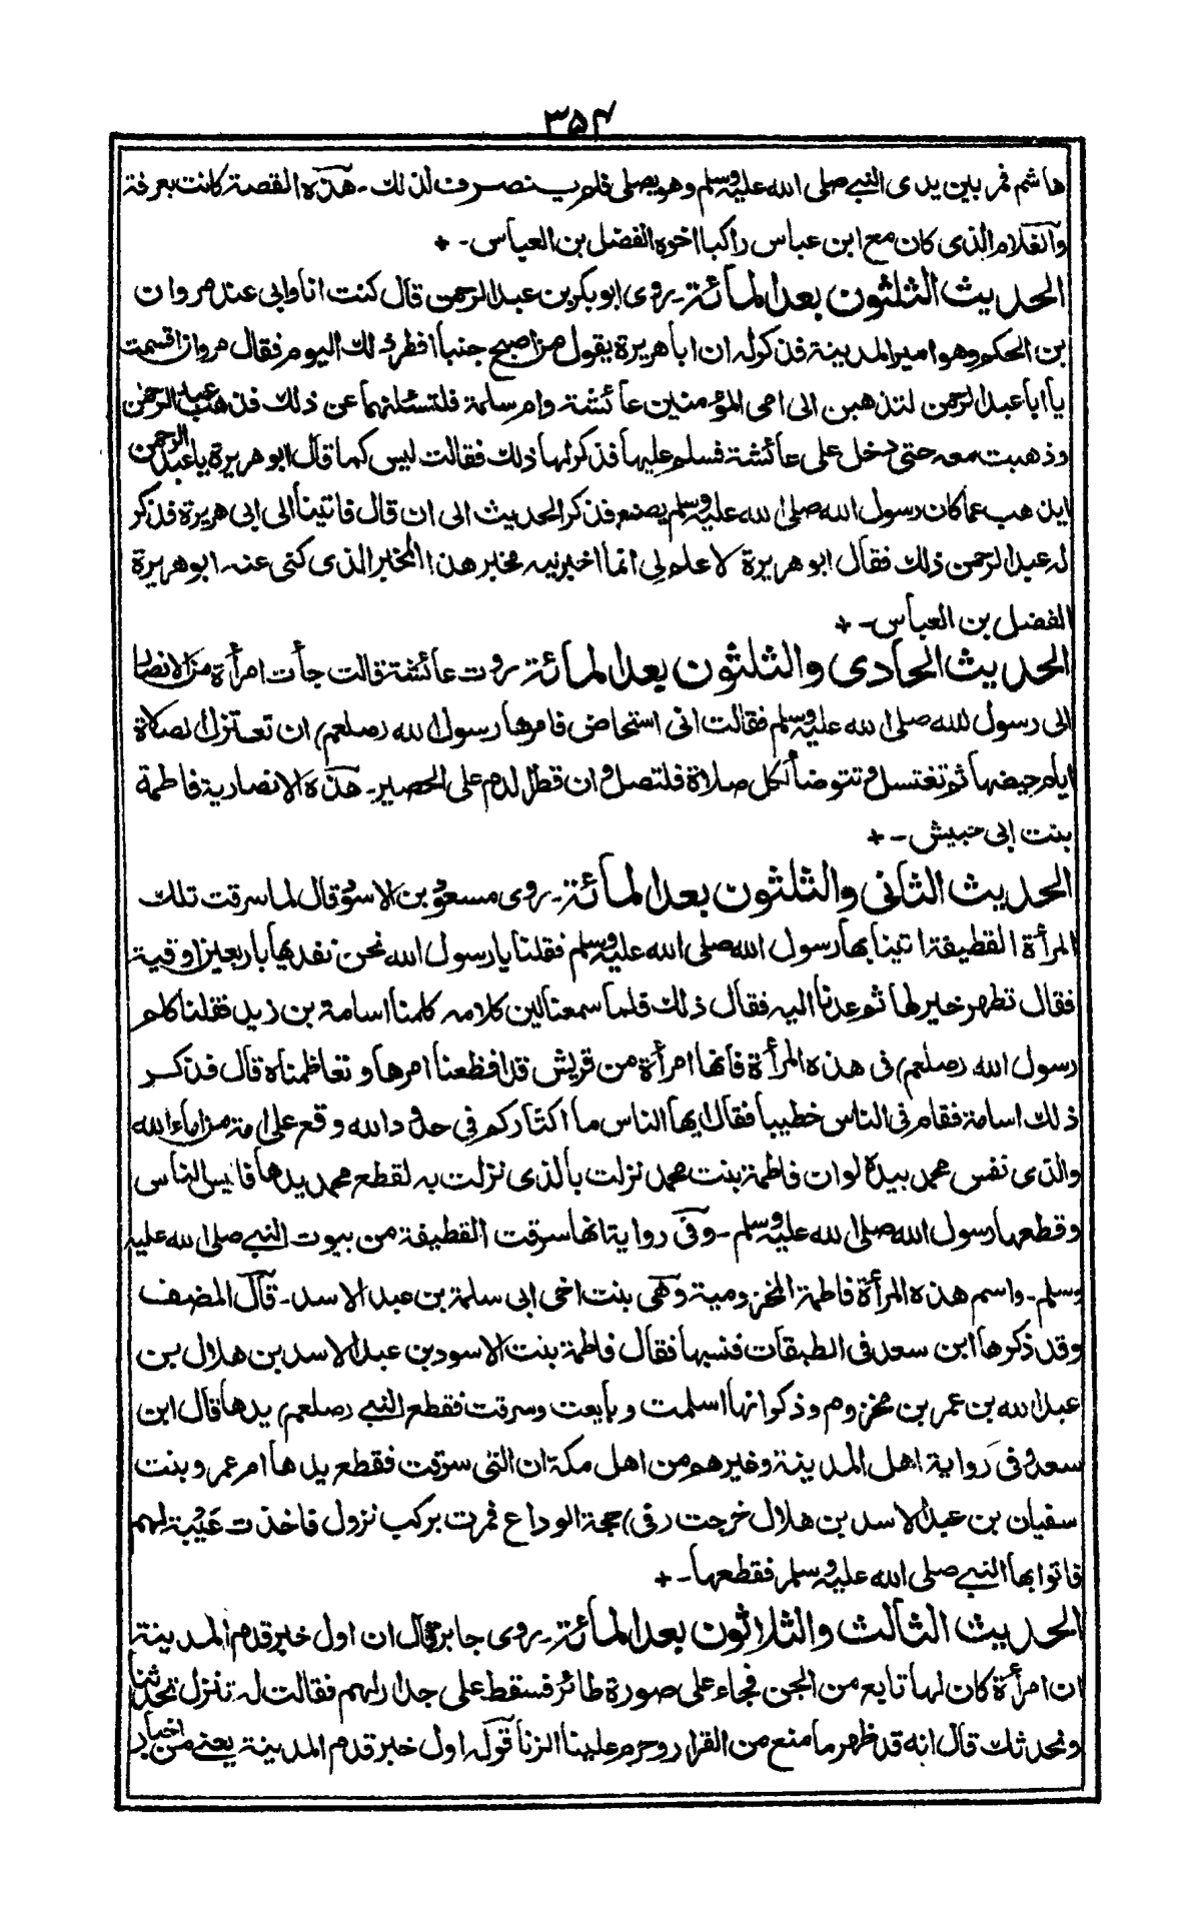 ٣٥٤
هاشم فمر بين يدى النبي صلى الله عليه وسلم وهو يصلى فلم ينصرف لذلك - هذه القصة كانت بعرفة
والغلام الذى كان مع ابن عباس راكبا اخوه الفضل بن العباس - +
الحديث الثلثون بعد المائة - روى ابو بكر بن عبد الرحمن قال كنت انا وابى عند مروان
بن الحكم وهو امير المدينة فذكر له ان ابا هريرة يقول من اصبح جنبا افطر ذلك اليوم فقال مروان اقسمت
يا ابا عبد الرحمن لتذهبن الى امى المؤمنين عائشة وام سلمة فلتسئلنهما عن ذلك فذهب عبد الرحمن
وذهبت معه حتى دخل على عائشة فسلم عليها فذكر لها ذلك فقالت ليس كما قال ابو هريرة يا عبد الرحمن
ايذهب عما كان رسول الله صلى الله عليه وسلم يصنع فذكر الحديث الى ان قال فاتينا الى ابى هريرة فذكر
له عبد الرحمن ذلك فقال ابو هريرة لا علم لى انما اخبرنيه مخبر هذا المخبر الذى كنى عنه ابو هريرة
الفضل بن العباس - +
الحديث الحادى والثلثون بعد المائة روت عائشة قالت جأت امرأة من الانصار
الى رسول الله صلى الله عليه وسلم فقالت انى استحاض فامرها رسول الله (صلعم) ان تعتزل الصلاة
ايام حيضها ثم تغتسل وتتوضأ لكل صلاة فلتصل وان قطر الدم على الحصير - هذه الانصارية فاطمة
بنت ابى حبيش - +
الحديث الثانى والثلثون بعد المائة - روى مسعود بن الاسود قال لما سرقت تلك
المرأة القطيفة اتينا بها رسول الله صلى الله عليه وسلم فقلنا يا رسول الله نحن نفديها باربعين اوقية
فقال تطهر خير لها ثم عدنا اليه فقال ذلك فلما سمعنا لين كلامه كلمنا اسامة بن زيد فقلنا كلم
رسول الله (صلعم) فى هذه المرأة فانها امرأة من قريش قد افظعنا امرها وتعاظمناه قال فذكر
ذلك اسامة فقام فى الناس خطيبا فقال ايها الناس ما اكثاركم فى حد من حدود الله وقع على امة من اماء الله
والذى نفس محمد بيده لو ان فاطمة بنت محمد نزلت بالذى نزلت به لقطع محمد يدها فايس الناس
وقطعها رسول الله صلى الله عليه وسلم - وفى رواية انها سرقت القطيفة من بيوت النبي صلى الله عليه
وسلم - واسم هذه المرأة فاطمة المخزومية وهى بنت اخى ابى سلمة بن عبد الاسد - قال المصنف
وقد ذكرها ابن سعد فى الطبقات فنسبها فقال فاطمة بنت الاسود بن عبد الاسد بن هلال بن
عبد الله بن عمر بن مخزوم وذكر انها اسلمت وبايعت وسرقت فقطع النبي (صلعم) يدها قال ابن
سعد وفى رواية اهل المدينة وغيرهم من اهل مكة ان التى سرقت فقطع يدها ام عمرو بنت
سفيان بن عبد الاسد بن هلال خرجت (فى) حجة الوداع فمرت بركب نزول فاخذت عيبة لهم
فاتوا بها النبي صلى الله عليه وسلم فقطعها - +
الحديث الثالث والثلاثون بعد المائة - روى جابر قال ان اول خبر قدم المدينة
ان امرأة كان لها تابع من الجن فجاء على صورة طائر فسقط على جدار لهم فقالت له تنزل تحدثنا
ونحدثك قال انه قد ظهر ما منع من القرار وحرم علينا الزنا قوله اول خبر قدم المدينة يعنى من اخبار